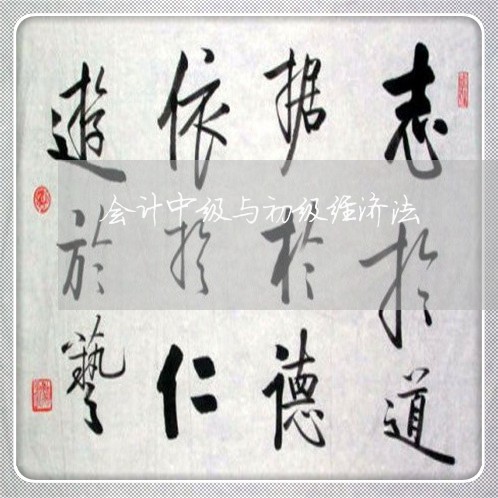 志於道
据於德
依於仁
遊於藝
会计中级与初级经济法